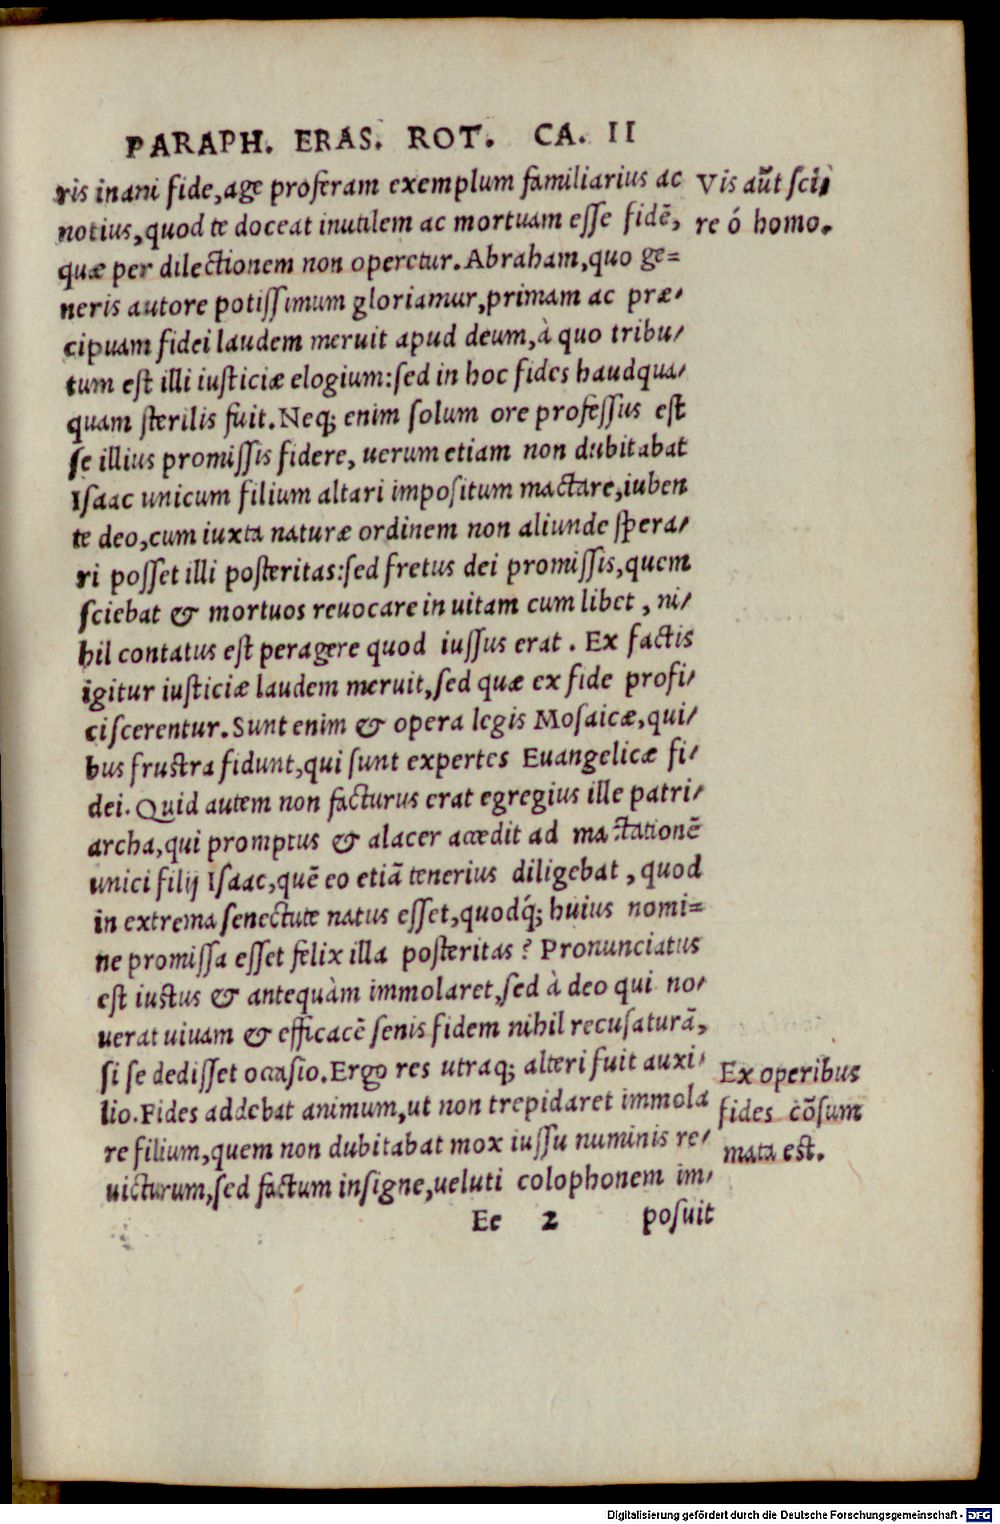 PARAPH. ERAS. ROT. CA. II
ris inani fide, age proferam exemplum familiarius ac
notius, quod te doceat inutilem ac mortuam esse fidē,
quæ per dilectionem non operetur. Abraham, quo ge=
neris autore potissimum gloriamur, primam ac præ-
cipuam fidei laudem meruit apud deum, à quo tribu-
tum est illi iusticiæ elogium: sed in hoc fides haudqua-
quam sterilis fuit. Neq; enim solum ore professus est
se illius promissis fidere, uerum etiam non dubitabat
Isaac unicum filium altari impositum mactare, iuben
te deo, cum iuxta naturæ ordinem non aliunde spera-
ri posset illi posteritas: sed fretus dei promissis, quem
sciebat & mortuos reuocare in uitam cum libet, ni-
hil contatus est peragere quod iussus erat. Ex factis
igitur iusticiæ laudem meruit, sed quæ ex fide profi-
ciscerentur. Sunt enim & opera legis Mosaicæ, qui-
bus frustra fidunt, qui sunt expertes Euangelicæ fi-
dei. Quid autem non facturus erat egregius ille patri-
archa, qui promptus & alacer accedit ad mactationē
unici filij Isaac, quē eo etiā tenerius diligebat, quod
in extrema senectute natus esset, quodq́; huius nomi=
ne promissa esset felix illa posteritas? Pronunciatus
est iustus & antequàm immolaret, sed à deo qui no-
uerat uiuam & efficacē senis fidem nihil recusaturā,
si se dedisset ocasio. Ergo res utraq; alteri fuit auxi-
lio. Fides addebat animum, ut non trepidaret immola
re filium, quem non dubitabat mox iussu numinis re-
uicturum, sed factum insigne, ueluti colophonem im-
Ee 2 posuit
Vis aūt sci-
re ó homo.
Ex operibus
fides cōsum
mata est.
Digitalisierung gefördert durch die Deutsche Forschungsgemeinschaft - DFG